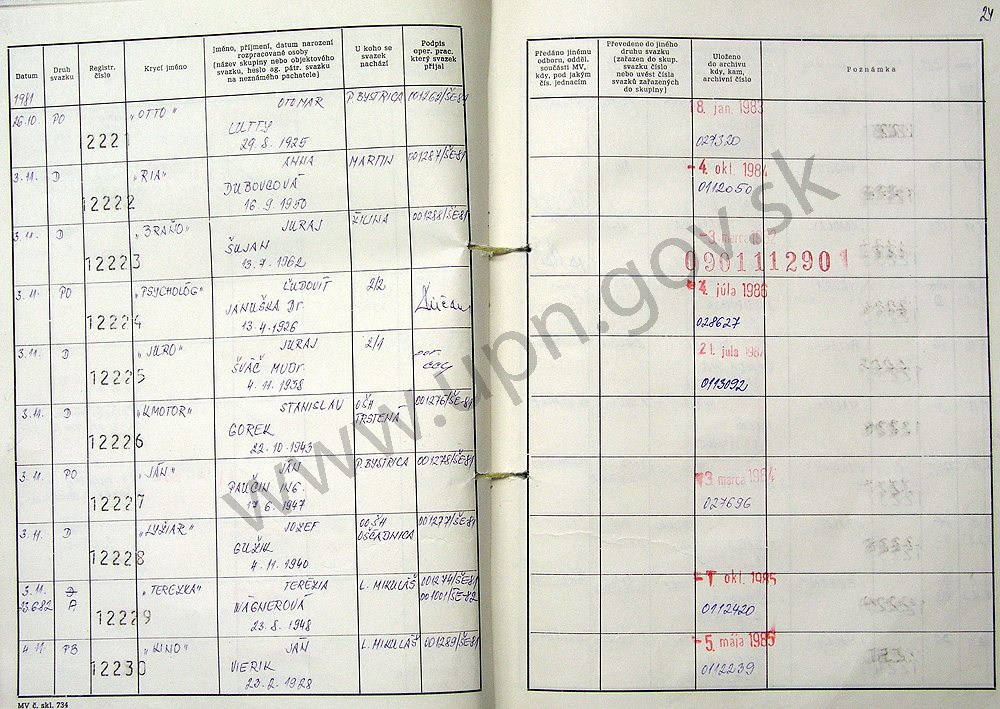 24
Datum
Druh svazku
Registr. číslo
Krycí jméno
Jméno, příjmení, datum narození
rozpracované osoby
(název skupiny nebo objektového
svazku, heslo ag. pátr. svazku
na neznámého pachatele)
U koho se
svazek
nachází
Podpis
oper. prac.
který svazek
přijal
Předáno jinému
odboru, odděl.
součásti MV,
kdy, pod jakým
čís. jednacím
Převedeno do jiného
druhu svazku
(zařazen do skup.
svazku číslo
nebo uvést čísla
svazků zařazených
do skupiny)
Uloženo
do archivu
kdy, kam,
archivní číslo
Poznámka
1981
26.10. PO 12221 "OTTO" OTOMAR P. BYSTRICA 001262/ŠE-81 18. jan. 1983
LUTTY
29. 8. 1925 027320
3.11. D 12222 "RIA" ANNA MARTIN 001287/ŠE81 -4. okt. 1984
DUBOVCOVÁ 0112050
16. 9. 1950
3.11. D 12223 "BRAŇO" JURAJ ŽILINA 001288/ŠE81 -3. marca
ŠUJAN 0901112901
13. 7. 1962
3.11. PO 12224 "PSYCHOLÓG" ĽUDOVÍT 2/2 -4. júla 1986
JANUŠKA Dr.
13. 4. 1926 028627
3.11. D 12225 "JURO" JURAJ 2/1 21. júla 198
ŠVÁČ MUDr.
4. 11. 1938 0113092
3.11. D 12226 "KMOTOR" STANISLAV OŠH TRSTENÁ 001276/ŠE-81
GOREK
22. 10. 1943
3.11. PO 12227 "JÁN" JÁN P. BYSTRICA 001278/ŠE-81 13. marca 1984
PAUČIN ING. 027696
17. 6. 1947
3.11. D 12228 "LYŽIAR" JOZEF OOŠH OŠČADNICA 001277/ŠE-81
GUŽIK
4. 11. 1940
3.11. D 12229 "TEREZKA" TERÉZIA L. MIKULÁŠ 001274/ŠE-81 okt. 1985
23.6.82 A WÁGNEROVÁ 001001/ŠE-82 0112420
23. 8. 1948
4.11. PB 12230 "KINO" JÁN L. MIKULÁŠ 001289/ŠE-81 -5. mája 1985
VIERIK 0112239
23. 2. 1928
MV č. skl. 734
www.upn.gov.sk